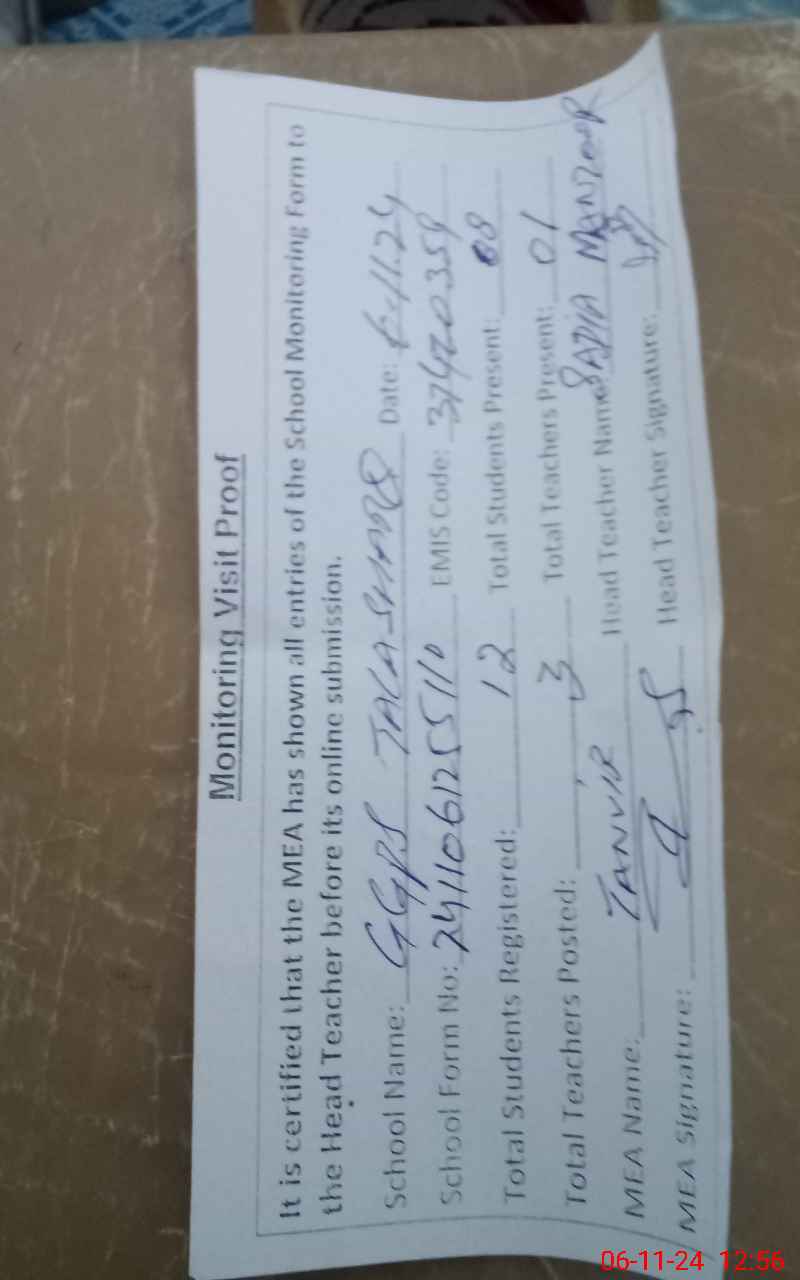 Monitoring Visit Proof
It is certified that the MEA has shown all entries of the School Monitoring Form to
the Head Teacher before its online submission.
School Name: GGPS TALASHMMS Date: 6-11.24
School Form No: 2411061255110 EMIS Code: 37420359
Total Students Registered: 12 Total Students Present: 08
Total Teachers Posted: 3 Total Teachers Present: 01
MEA Name: TANVIR Head Teacher Name: SADIA MANZOOR
MEA Signature: Head Teacher Signature:
06-11-24 12:56